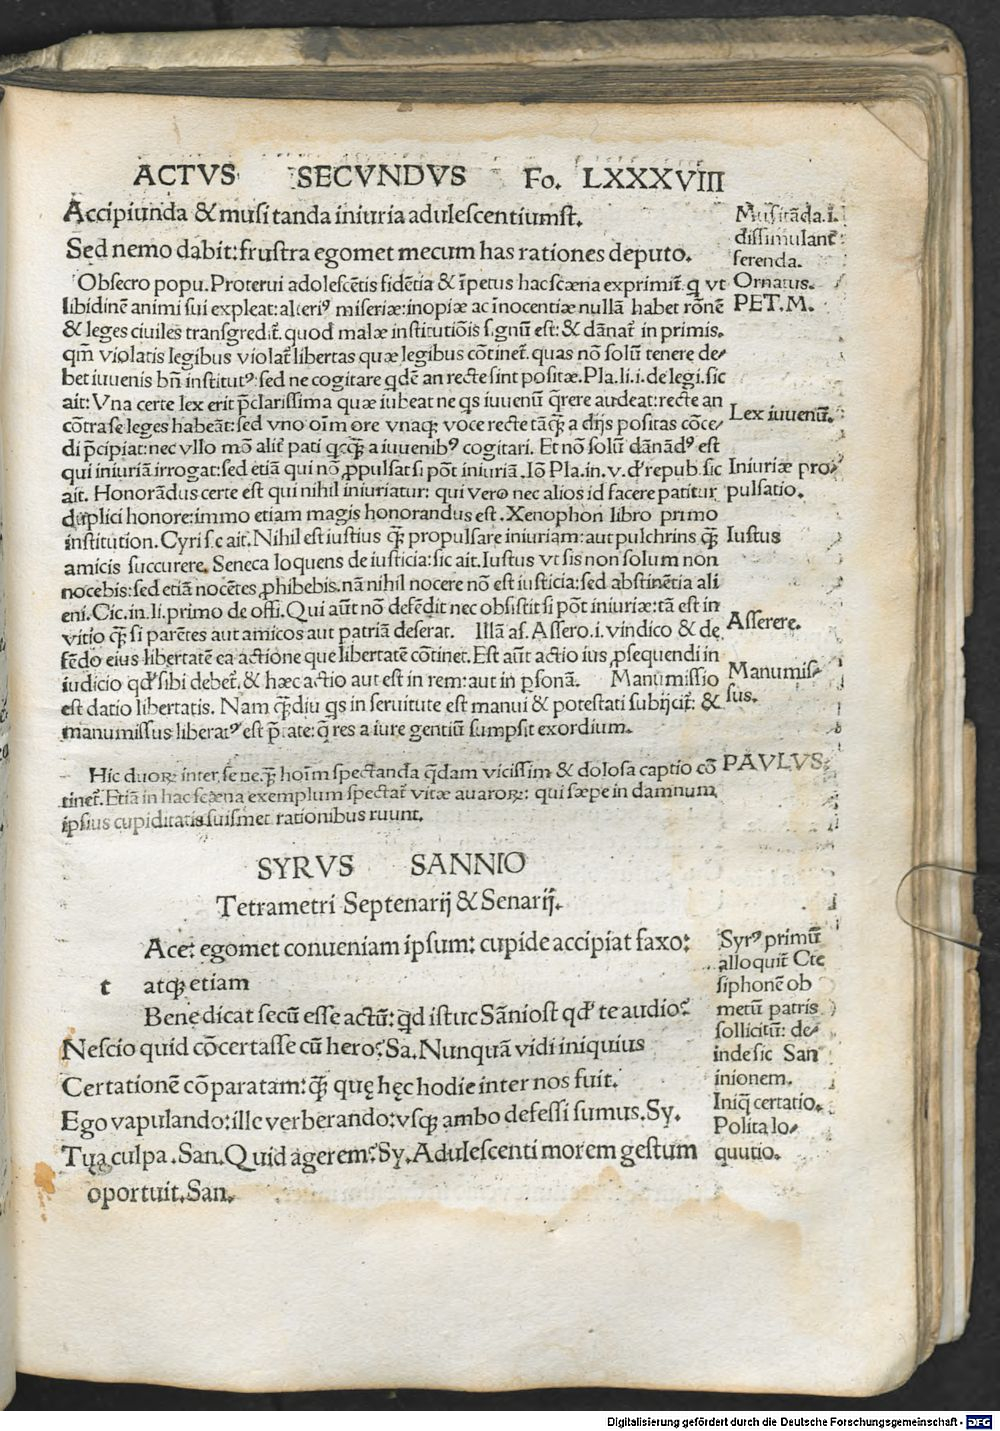 ACTVS SECVNDVS Fo. LXXXVIII
Accipiunda & musitanda iniuria adulescentiumst.
Sed nemo dabit: frustra egomet mecum has rationes deputo.
Obsecro popu. Proterui adolescẽtis fidẽtia & ĩpetus hac scæna exprimit̃. q vt
libidinẽ animi sui expleat: alteriꝰ miseriæ: inopiæ ac ĩnocentiæ nullã habet rõnẽ
& leges ciuiles transgredit̃. quod malæ institutiõis signũ est: & dãnat̃ in primis.
qm̃ violatis legibus violat̃ libertas quæ legibus cõtinet̃. quas nõ solũ tenere de⸗
bet iuuenis bñ institutꝰ: sed ne cogitare qdẽ an recte sint positæ. Pla. li. i. de legi. sic
ait: Vna certe lex erit p̃clarissima quæ iubeat ne qs iuuenũ q̃rere audeat: recte an
cõtra se leges habeãt: sed vno oĩm ore vnaqꝫ voce recte tãqꝫ a dijs positas cõce⸗
di p̃cipiat: nec vllo mõ alit̃ pati qcqꝫ a iuuenibꝰ cogitari. Et nõ solũ dãnãdꝰ est
qui iniuriã irrogat: sed etiã qui nõ ꝓpulsat si põt iniuriã. Iõ Pla. in. v. d' repub. sic
ait. Honorãdus certe est qui nihil iniuriatur: qui vero nec alios id facere patitur
duplici honore: immo etiam magis honorandus est. Xenophon libro primo
institution. Cyri s.c ait. Nihil est iustius qꝫ propulsare iniuriam: aut pulchrins qꝫ
amicis succurere. Seneca loquens de iusticia: sic ait. Iustus vt sis non solum non
nocebis: sed etiã nocẽtes ꝓhibebis. nã nihil nocere nõ est iusticia: sed abstinẽtia ali
eni. Cic. in. li. primo de offi. Qui aũt nõ defẽdit nec obsistit si põt iniuriæ: tã est in
vitio qꝫ si parẽtes aut amicos aut patriã deserat. Illã as. Assero. i. vindico & de
fẽdo eius libertatẽ ea actione que libertatẽ cõtinet. Est aũt actio ius ꝓsequendi in
iudicio qd' sibi debet̃. & hæc actio aut est in rem: aut in ꝑsonã. Manumissio
est datio libertatis. Nam qꝫdiu qs in seruitute est manui & potestati subijcit̃: &
manumissus liberatꝰ est p̃tate: q̃ res a iure gentiũ sumpsit exordium.
Hic duoꝝ inter se neqꝫ hoĩm spectanda q̃dam vicissim & dolosa captio cõ
tinet̃. Etiã in hac scæna exemplum spectat̃ vitæ auaroꝝ: qui sæpe in damnum
ipsius cupiditatis suismet rationibus ruunt.
SYRVS SANNIO
Tetrametri Septenarij & Senarij.
Ace: egomet conueniam ipsum: cupide accipiat faxo:
t atqꝫ etiam
Bene dicat secũ esse actũ: qd istuc Sãniost qd' te audio?
Nescio quid cõcertasse cũ hero? Sa. Nunquã vidi iniquius
Certationẽ cõparatam: qꝫ quę hęc hodie inter nos fuit.
Ego vapulando: ille verberando: vsqꝫ ambo defessi sumus. Sy.
Tua culpa. San. Quid agerem? Sy. Adulescenti morem gestum
oportuit. San.
Musitãda. i.
dissimulant̃
ferenda.
Ornatus.
PET. M.
Lex iuuenũ.
Iniuriæ pro⸗
pulsatio.
Iustus
Asserere.
Manumis⸗
sus.
PAVLVS.
Syrꝰ primũ
alloquit̃ Cte
siphonẽ ob
metũ patris
sollicitũ: de⸗
inde sic San
inionem.
Iniq̃ certatio.
Polita lo⸗
quutio.
Digitalisierung gefördert durch die Deutsche Forschungsgemeinschaft - DFG